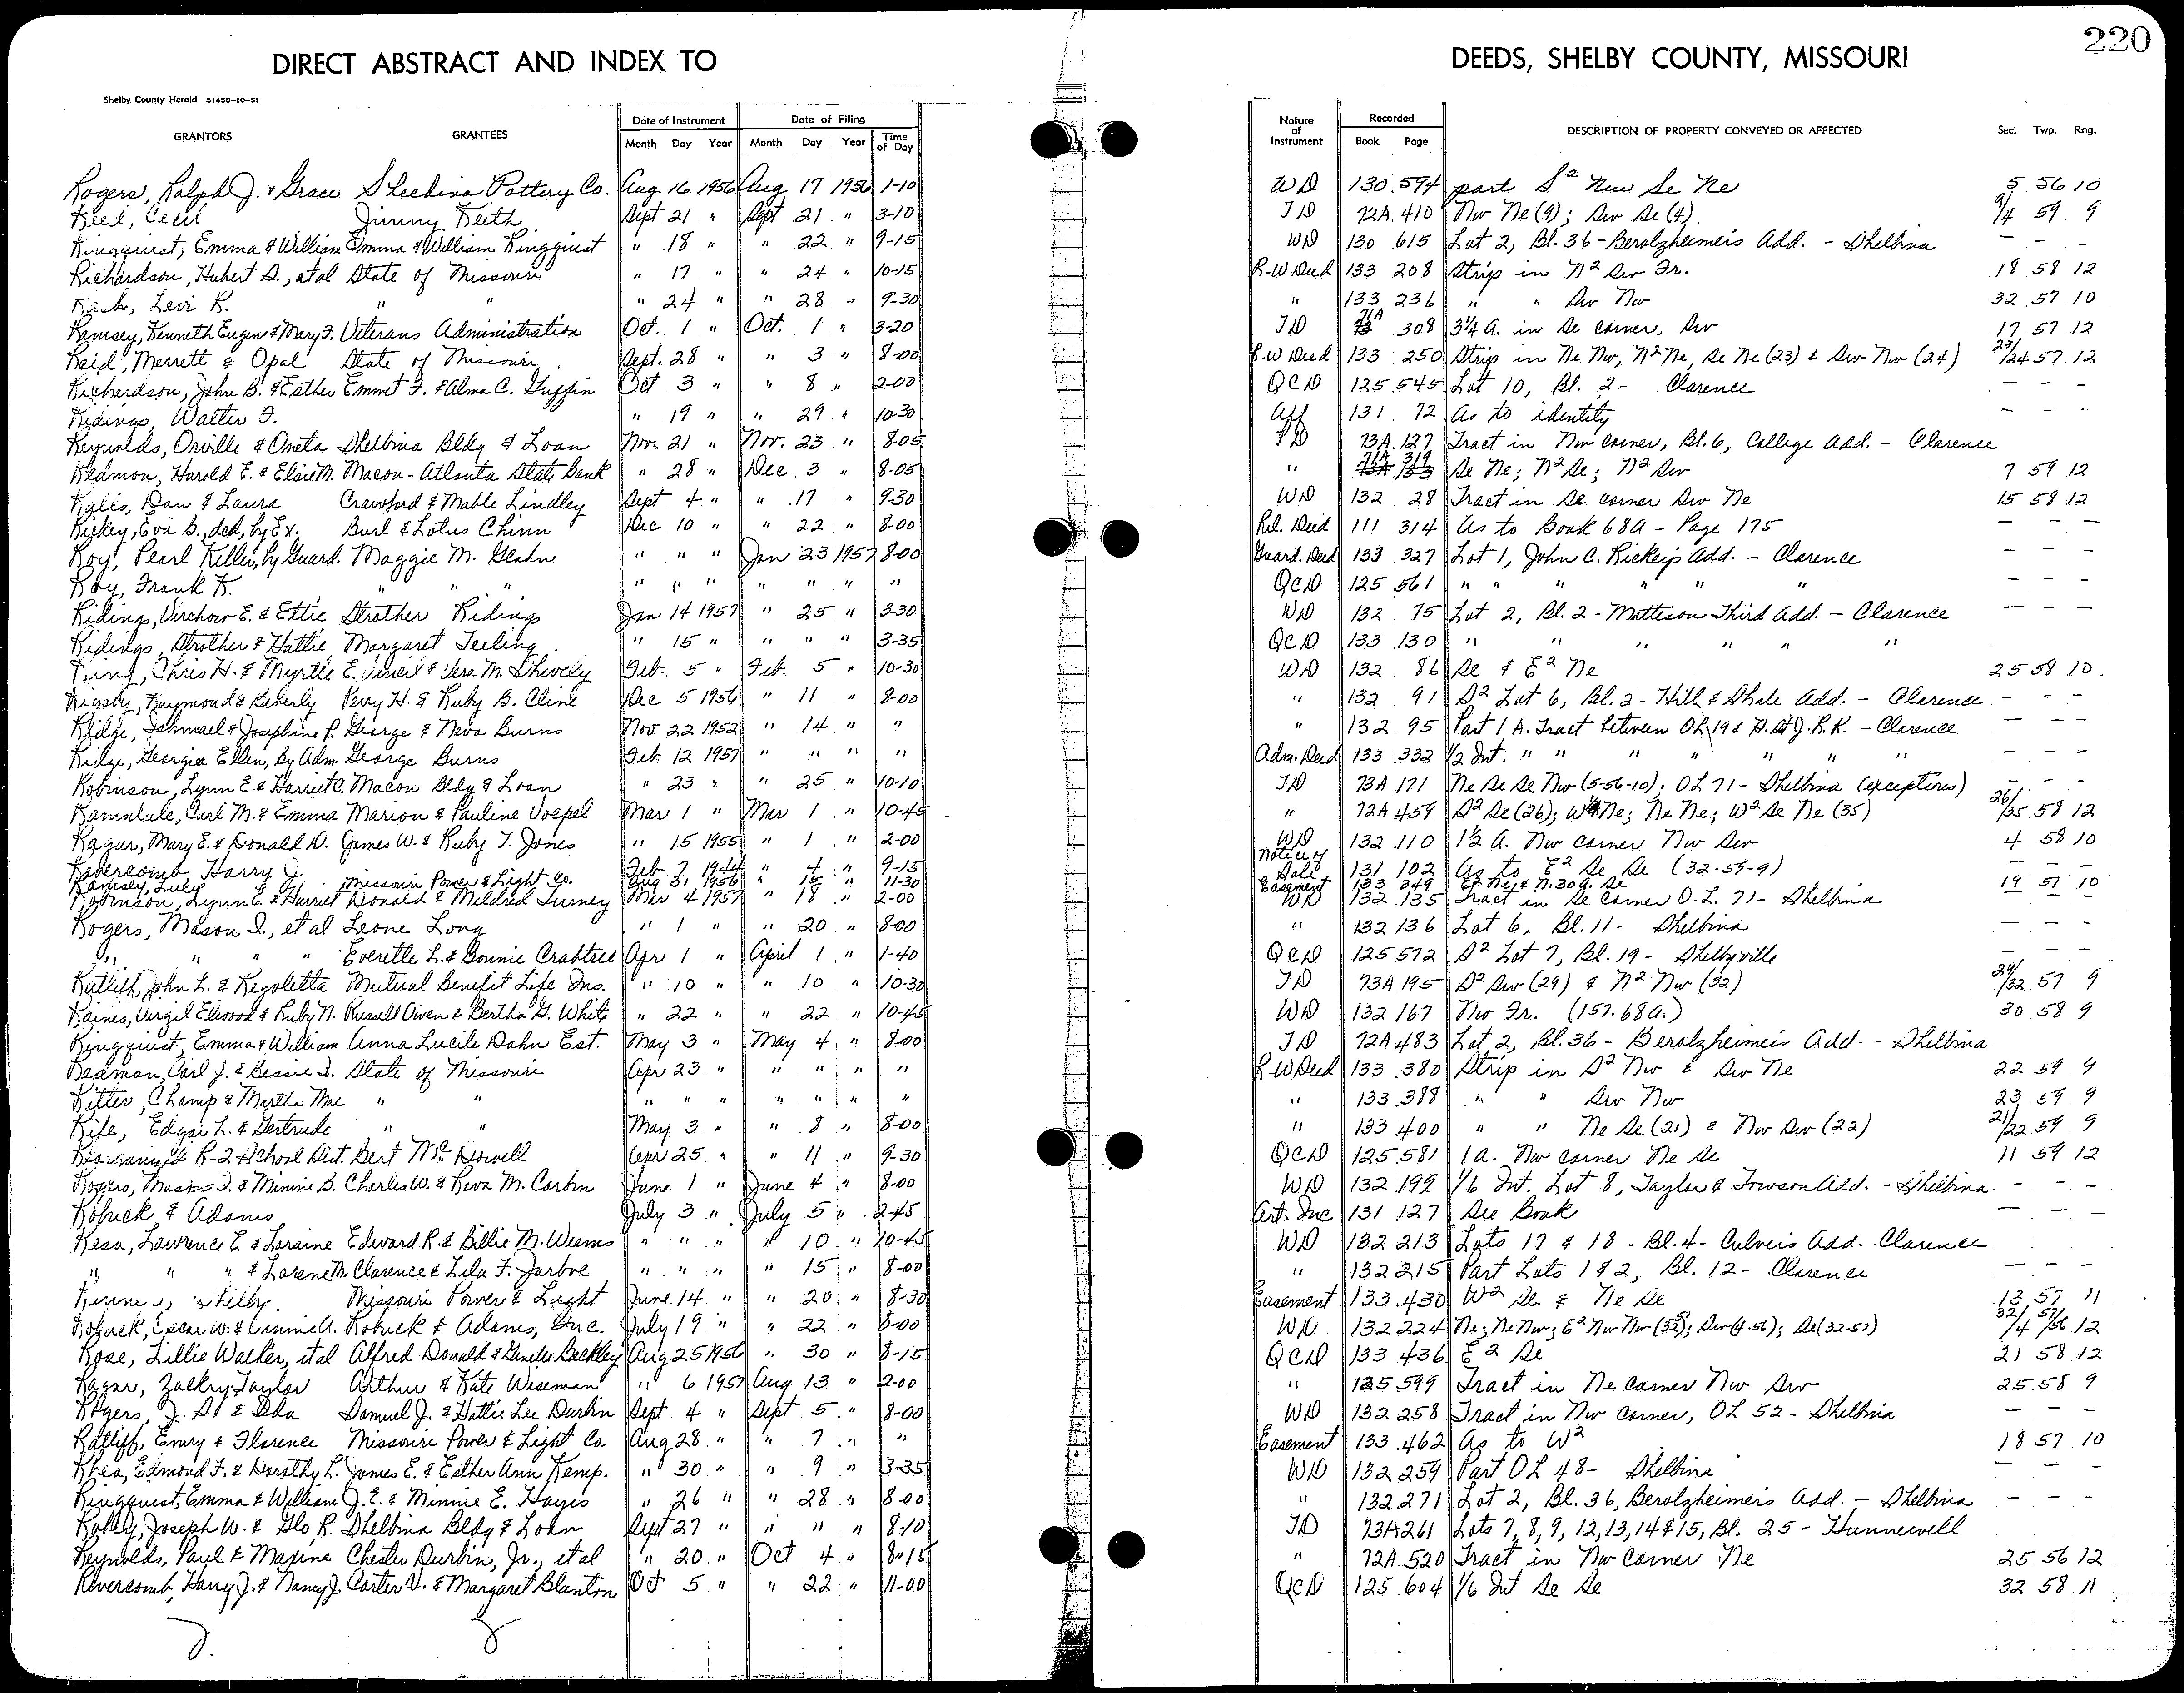 220
DIRECT ABSTRACT AND INDEX TO DEEDS, SHELBY COUNTY, MISSOURI
Shelby County Herald 51458-10-51
GRANTORS GRANTEES Date of Instrument Date of Filing Nature of Instrument Recorded DESCRIPTION OF PROPERTY CONVEYED OR AFFECTED Sec. Twp. Rng.
Month Day Year Month Day Year Time of Day Book Page
Rogers, Ralph J. & Grace Sheebina Pottery Co. Aug 16 1956 Aug 17 1956 1-10 WD 130 594 part S² Nw Se Ne 5 56 10
Ried, Cecil Jimmy Keith Sept 21 " Sept 21 " 3-10 TD 72A 410 Nw Ne (9); Sw Se (4). 9/4 59 9
Ringquist, Emma & William Emma & William Ringquist " 18 " " 22 " 9-15 WD 130 615 Lot 2, Bl. 36 - Berolzheimer's Add. - Shelbina - - -
Richardson, Hubert S., et al State of Missouri " 17 " " 24 " 10-15 R-W Deed 133 208 Strip in N² Sw Fr. 18 58 12
Rash, Levi R. " " " 24 " " 28 " 9-30 " 133 236 " " Sw Nw 32 57 10
Ramsey, Kenneth Eugen & Mary F. Veterans Administration Oct. 1 " Oct. 1 " 3-20 TD 71A 308 3¼ A. in Se corner, Sw 17 57 12
Reid, Merrett & Opal State of Missouri Sept. 28 " " 3 " 8-00 R-W Deed 133 250 Strip in Ne Nw, N² Ne, Se Ne (23) & Sw Nw (24) 23/24 57 12
Richardson, John B. & Esther Emmet F. & Alma C. Griffin Oct 3 " " 8 " 2-00 QCD 125 545 Lot 10, Bl. 2 - Clarence - - -
Ridings, Walter F. " 19 " " 29 " 10-30 Aff 131 72 As to identity - - -
Reynolds, Orville & Oneta Shelbina Bldg & Loan Nov. 21 " Nov. 23 " 8-05 TD 73A 127 Tract in Nw corner, Bl. 6, College Add. - Clarence
Redmon, Harold E. & Elsie M. Macon-Atlanta State Bank " 28 " Dec. 3 " 8-05 " 71A 319 Se Ne; N² Se; N² Sw 7 59 12
Ralls, Dan & Laura Crawford & Mable Lindley Sept 4 " " 17 " 9-30 WD 132 28 Tract in Se corner Sw Ne 15 58 12
Rickey, Eva B., ded, by Ex. Burl & Lotus Chinn Dec 10 " " 22 " 8-00 Rel. Deed 111 314 As to Book 68A - Page 175 - - -
Roy, Pearl Killer, by Guard. Maggie M. Glahn " " " Jan 23 1957 8-00 Guard. Deed 133 327 Lot 1, John C. Rickey's Add. - Clarence - - -
Roy, Frank K. " " " " " " " " " QCD 125 561 " " " " " - - -
Ridings, Virchow E. & Ettie Strother Ridings Jan 14 1957 " 25 " 3-30 WD 132 75 Lot 2, Bl. 2 - Mattison Third Add. - Clarence - - -
Ridings, Strother & Hattie Margaret Teeling " 15 " " " " 3-35 QCD 133 130 " " " " " "
Ring, Chris H. & Myrtle E. Vincil & Vera M. Shively Feb. 5 " Feb. 5 " 10-30 WD 132 86 Se & E² Ne 25 58 10
Rigsby, Raymond & Beverly Perry H. & Ruby B. Cline Dec 5 1956 " 11 " 8-00 " 132 91 S² Lot 6, Bl. 2 - Hill & Shale Add. - Clarence - - -
Ridge, Ishmael & Josephine P. George & Neva Burns Nov 22 1952 " 14 " " " 132 95 Part 1 A. Tract between OL 19 & H. & St J. R.R. - Clarence - - -
Ridge, Georgia Ellen, By Adm. George Burns Feb. 12 1957 " " " " Adm. Deed 133 332 ½ Int. " " " " " " - - -
Robinson, Lynn E. & Harriet C. Macon Bldg & Loan " 23 " " 25 " 10-10 TD 73A 171 Ne Se Se Nw (5-56-10); OL 71 - Shelbina (exceptions) - - -
Ravenstule, Carl M. & Emma Marion & Pauline Voepel Mar 1 " Mar 1 " 10-45 " 72A 459 S² Se (26); W² Ne; Ne Ne; W² Se Ne (35) 26/35 58 12
Ragar, Mary E. & Donald D. James W. & Ruby T. Jones " 15 1955 " 1 " 2-00 WD 132 110 1½ A. Nw corner Nw Sw 4 58 10
Revercomb, Harry J. Feb 7 1944 " 4 " 9-15 Notice of Sale 131 102 As to E² Se Se (32-59-9) - - -
Ramsey, Lucy Missouri Power & Light Co. Aug 31 1956 " 15 " 11-30 Easement 133 349 E² Ne & N. 30 A. Se 19 57 10
Robinson, Lynn E. & Harriet Donald & Mildred Turney Mar 4 1957 " 18 " 2-00 WD 132 135 Tract in Se corner O.L. 71 - Shelbina
Rogers, Mason S., et al Leone Long " 1 " " 20 " 8-00 " 132 136 Lot 6, Bl. 11 - Shelbina - - -
" " " " Everette L. & Bonnie Crabtree Apr 1 " April 1 " 1-40 QCD 125 572 S² Lot 7, Bl. 19 - Shelbyville - - -
Ratliff, John L. & Regoletta Mutual Benefit Life Ins. " 10 " " 10 " 10-30 TD 73A 195 S² Sw (29) & N² Nw (32) 29/32 57 9
Raines, Virgil Elwood & Ruby N. Russell Owen & Bertha G. White " 22 " " 22 " 10-45 WD 132 167 Nw Fr. (157.68A.) 30 58 9
Ringquist, Emma & William Anna Lucile Dahn Est. May 3 " May 4 " 8-00 TD 72A 483 Lot 2, Bl. 36 - Berolzheimer's Add. - Shelbina
Redman, Carl J. & Bessie I. State of Missouri Apr 23 " " " " " R-W Deed 133 380 Strip in S² Nw & Sw Ne 22 59 9
Ritter, Champ & Martha Mae " " " " " " " " " " 133 388 " " Sw Nw 23 59 9
Rife, Edgar L. & Gertrude " " May 3 " " 8 " 8-00 " 133 400 " " Ne Se (21) & Nw Sw (22) 21/22 59 9
Reorganized R-2 School Dist. Bert McDowell Apr 25 " " 11 " 9-30 QCD 125 581 1 A. Nw corner Ne Se 11 59 12
Rogers, Mason S. & Minnie B. Charles W. & Reva M. Corbin June 1 " June 4 " 8-00 WD 132 199 1/6 Int. Lot 8, Taylor & Towson Add. - Shelbina - - -
Robuck & Adams July 3 " July 5 " 2-45 Cert. Inc 131 127 See Book - - -
Resa, Lawrence E. & Loraine Edward R. & Billie M. Weems " " " " 10 " 10-45 WD 132 213 Lots 17 & 18 - Bl. 4 - Culver's Add. Clarence
" " " & Lorene M. Clarence & Lila F. Jarboe " " " " 15 " 8-00 " 132 215 Part Lots 1 & 2, Bl. 12 - Clarence - - -
Shelby Missouri Power & Light June 14 " " 20 " 8-30 Easement 133 430 W² Se & Ne Se 13 57 11
Robuck, Oscar W. & Annie A. Robuck & Adams, Inc. July 19 " " 22 " 8-00 WD 132 224 Ne; Ne Nw; E² Nw Nw (32); Sw (4-56); Se (32-57) 32/4 57/56 12
Rose, Lillie Walker, et al Alfred Donald & Beckley Aug 25 1956 " 30 " 8-15 QCD 133 436 E² Se 21 58 12
Ragar, Zackry Taylor Arthur & Kate Wiseman " 6 1957 Aug 13 " 2-00 " 125 599 Tract in Ne corner Nw Sw 25 58 9
Rogers, J. D. & Ida Samuel J. & Hattie Lee Durbin Sept 4 " Sept 5 " 8-00 WD 132 258 Tract in Nw corner, OL 52 - Shelbina - - -
Ratliff, Emry & Florence Missouri Power & Light Co. Aug 28 " " 7 " " Easement 133 462 As to W² 18 57 10
Rhea, Edmond F. & Dorothy L. James E. & Esther Ann Kemp. " 30 " " 9 " 3-35 WD 132 259 Part OL 48 - Shelbina - - -
Ringquist, Emma & William J. E. & Minnie E. Hayes " 26 " " 28 " 8-00 " 132 271 Lot 2, Bl. 36, Berolzheimer's Add. - Shelbina - - -
Joseph W. & Glo R. Shelbina Bldg & Loan Sept 27 " " " " 8-10 TD 73A 261 Lots 7, 8, 9, 12, 13, 14 & 15, Bl. 25 - Hunnewell
Reynolds, Paul & Maxine Chester Durbin, Jr., et al " 20 " Oct 4 " 8-15 " 72A 520 Tract in Nw Corner Ne 25 56 12
Revercomb, Harry J. & Nancy J. Carter V. & Margaret Blanton Oct 5 " " 22 " 11-00 QCD 125 604 1/6 Int Se Se 32 58 11